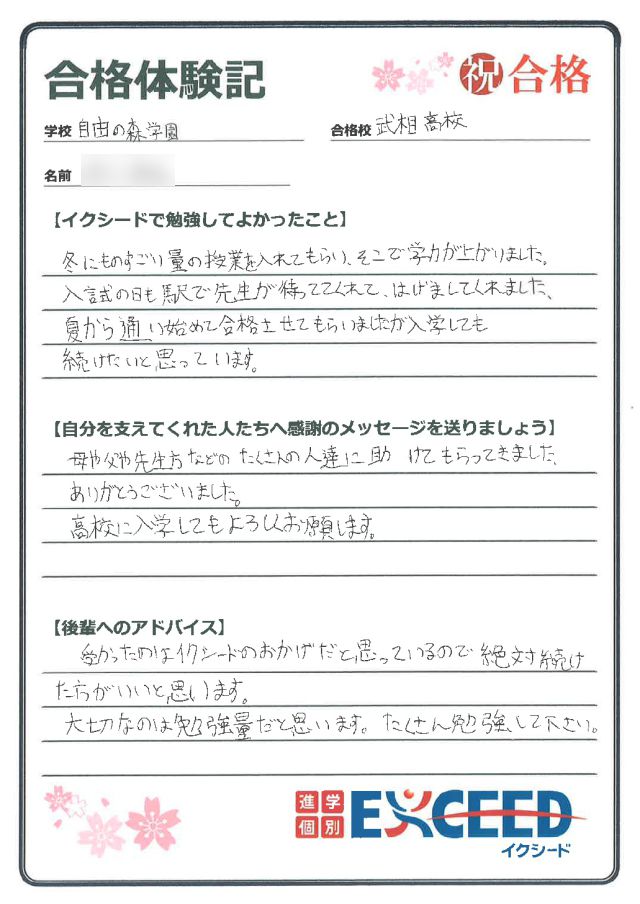 合格体験記
祝 合格
学校 自由の森学園
合格校 武相高校
名前
【イクシードで勉強してよかったこと】
冬にものすごい量の授業を入れてもらい、そこで学力が上がりました。
入試の日も駅で先生が待っててくれて、はげましてくれました、
夏から通い始めて合格させてもらいましたが入学しても
続けたいと思っています。
【自分を支えてくれた人たちへ感謝のメッセージを送りましょう】
母や父や先生方などのたくさんの人達に助けてもらってきました、
ありがとうございました。
高校に入学してもよろしくお願します。
【後輩へのアドバイス】
受かったのはイクシードのおかげだと思っているので絶対続け
た方がいいと思います。
大切なのは勉強量だと思います。たくさん勉強して下さい。
進学
個別
EXCEED
イクシード